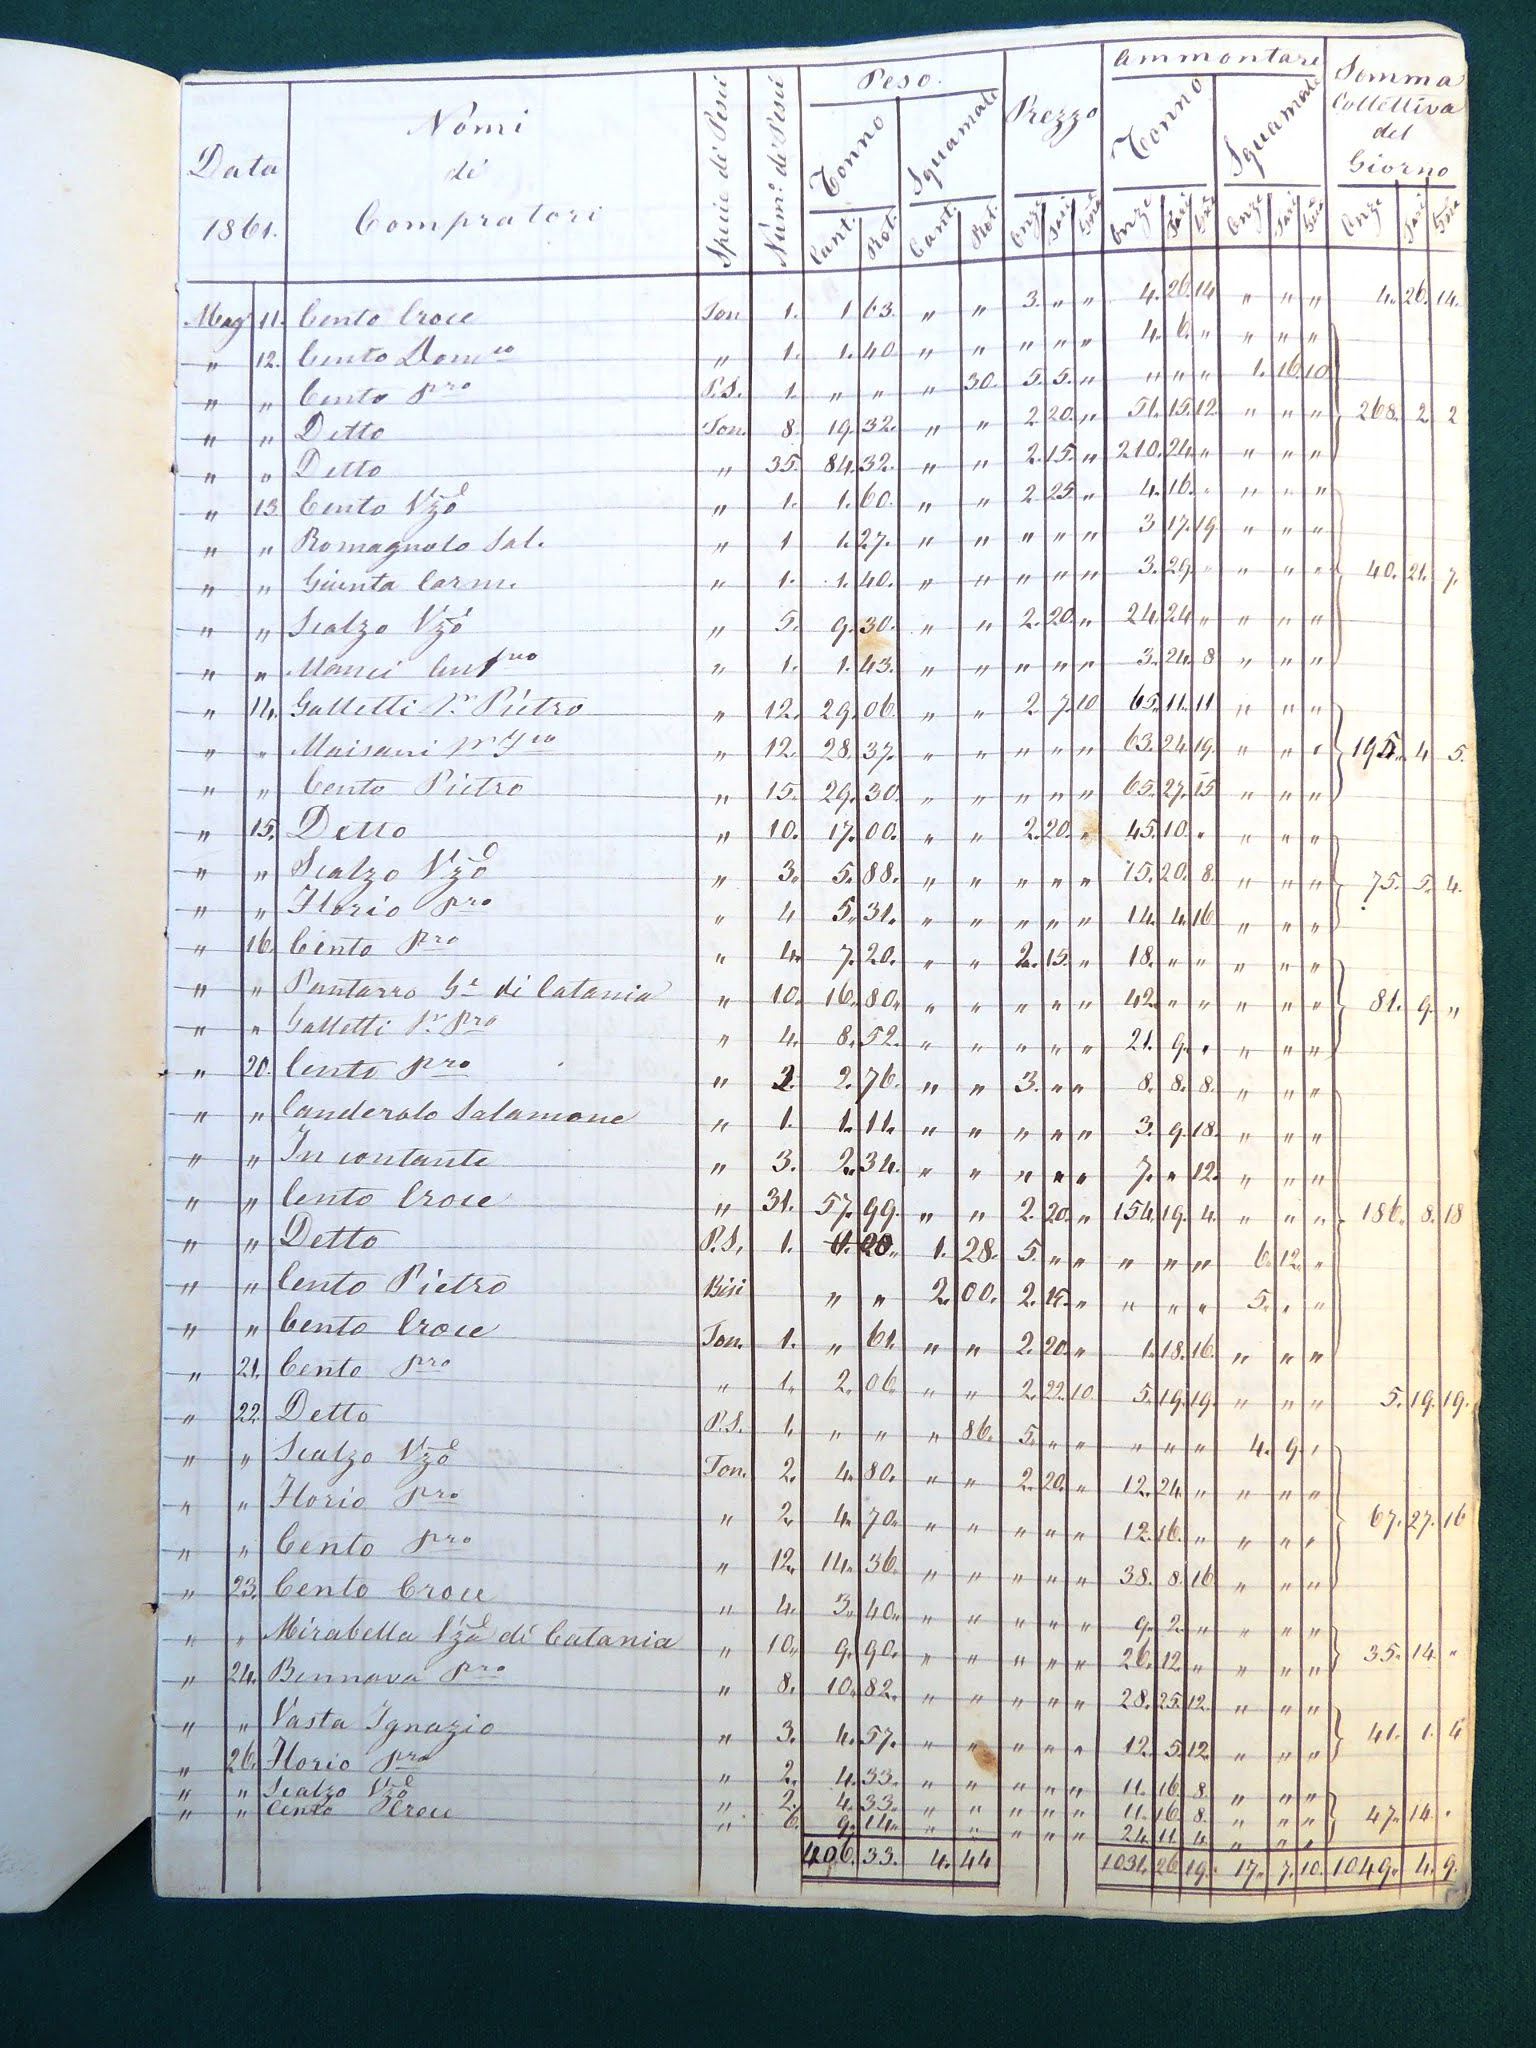 Data 1861. Nomi di Compratori Specie di Pesci Num.o di Pesci Peso Prezzo Ammontare Somma Collettiva del Giorno
Tonno Squamale Tonno Squamale
Cant. Rot. Cant. Rot. Onze Tarì Grna Onze Tarì Grna Onze Tarì Grna Onze Tarì Grna
Mag.o 11. Cento Croce Ton 1. 1 63. " " 3. " " 4. 26. 14 " " " 4. 26. 14.
" 12. Cento Dom.co " 1. 1. 40 " " " " " 4. 6. " " " "
" " Cento Pro P.S. 1. " " " 30. 5. 5. " " " " 1. 16. 10
" " Detto Ton. 8 19. 32. " " 2 20. " 51. 15. 12. " " " 268. 2. 2
" " Detto " 35. 84. 32. " " 2. 15. " 210. 24. " " " "
" 13 Cento Vzo " 1. 1. 60. " " 2 25 " 4. 16. " " " "
" " Romagnolo Sal. " 1 1. 27. " " " " " 3 17. 19. " " "
" " Giunta Carm. " 1. 1. 40. " " " " " 3. 29. " " " " 40. 21. 7.
" " Scalzo Vzo " 5. 9. 30. " " 2. 20. " 24. 24 " " " "
" " " 1. 1. 43. " " " " " 3. 24. 8 " " "
" 14. Galletti Pietro " 12. 29. 06. " " 2 7. 10 65. 11. 11 " " "
" " Maisani " 12. 28. 37. " " " " " 63. 24. 19. " " " 195. 4 5.
" " Cento Pietro " 15. 29. 30. " " " " " 65. 27. 15 " " "
" 15. Detto " 10. 17. 00. " " 2. 20. " 45. 10. " " " "
" " Scalzo Vzo " 3. 5. 88. " " " " " 15. 20. 8. " " " 75. 5. 4.
" " Florio Pro " 4 5. 31. " " " " " 14. 4. 16 " " "
" 16. Cento Pro " 4. 7. 20. " " 2. 15. " 18. " " " " "
" " Pantarro G.e di Catania " 10. 16. 80. " " " " " 42. " " " " " 81. 9. "
" " Galletti Pro " 4. 8. 52. " " " " " 21. 9. " " " "
" 20. Cento Pro " 3. 2. 76. " " 3. " " 8. 8. 8. " " "
" " Canderolo Salamone " 1. 1. 11. " " " " " 3. 9. 18. " " "
" " In contante " 3. 2. 34. " " " " " 7. " 12. " " "
" " Cento Croce " 31. 57. 99. " " 2. 20. " 154. 19. 4. " " " 186. 8. 18
" " Detto P.S. 1. 1. 28. 5. " " " " " 6. 12. "
" " Cento Pietro Bisi " " 2. 00. 2. 15. " " " " 5. " "
" " Cento Croce Ton. 1. " 61. " " 2. 20. " 1. 18. 16. " " "
" 21. Cento Pro " 1. 2. 06 " " 2. 22. 10. 5. 19. 19. " " " 5. 19. 19.
" 22. Detto P.S. 1. " " " 86. 5. " " " " " 4. 9. "
" " Scalzo Vzo Ton. 2. 4. 80. " " 2. 20. " 12. 24. " " " "
" " Florio Pro " 2. 4. 70. " " " " " 12. 16. " " " " 67. 27. 16
" " Cento Pro " 12. 14. 36. " " " " " 38. 8. 16 " " "
" 23. Cento Croce " 4. 3. 40. " " " " " 9. 2. " " " "
" " Mirabella Vzo di Catania " 10. 9. 90. " " " " " 26. 12. " " " " 35. 14. "
" 24. Bennava Pro " 8. 10. 82. " " " " " 28. 25. 12. " " "
" " Vasta Ignazio " 3. 4. 57. " " " " " 12. 5. 12. " " " 41. 1. 4
" 26. Florio Pro " 2. 4. 33. " " " " " 11. 16. 8. " " "
" " Scalzo Vzo " 2. 4. 33. " " " " " 11. 16. 8. " " " 47. 14. "
" " Cento Croce " 6. 9. 14. " " " " " 24. 11. 4. " " "
406. 33. 4. 44 1031. 26. 19. 17. 7. 10. 1049. 4. 9.